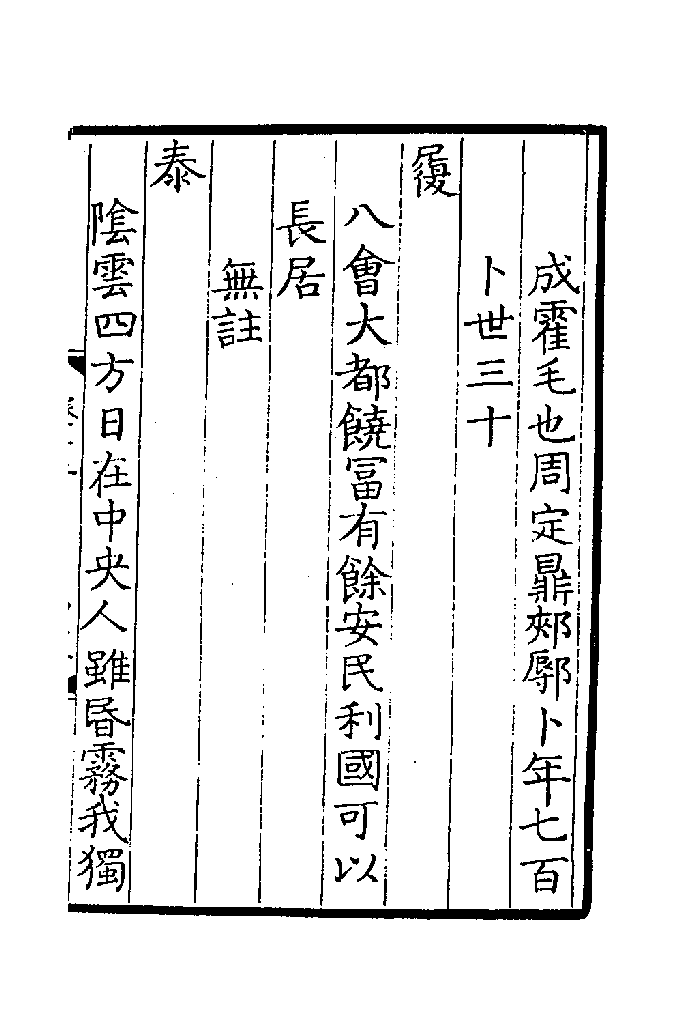 成霍毛也周定鼎郟鄏卜年七百
卜世三十
履
八會大都饒冨有餘安民利國可以
長居
無註
泰
陰雲四方日在中央人雖昏霧我獨